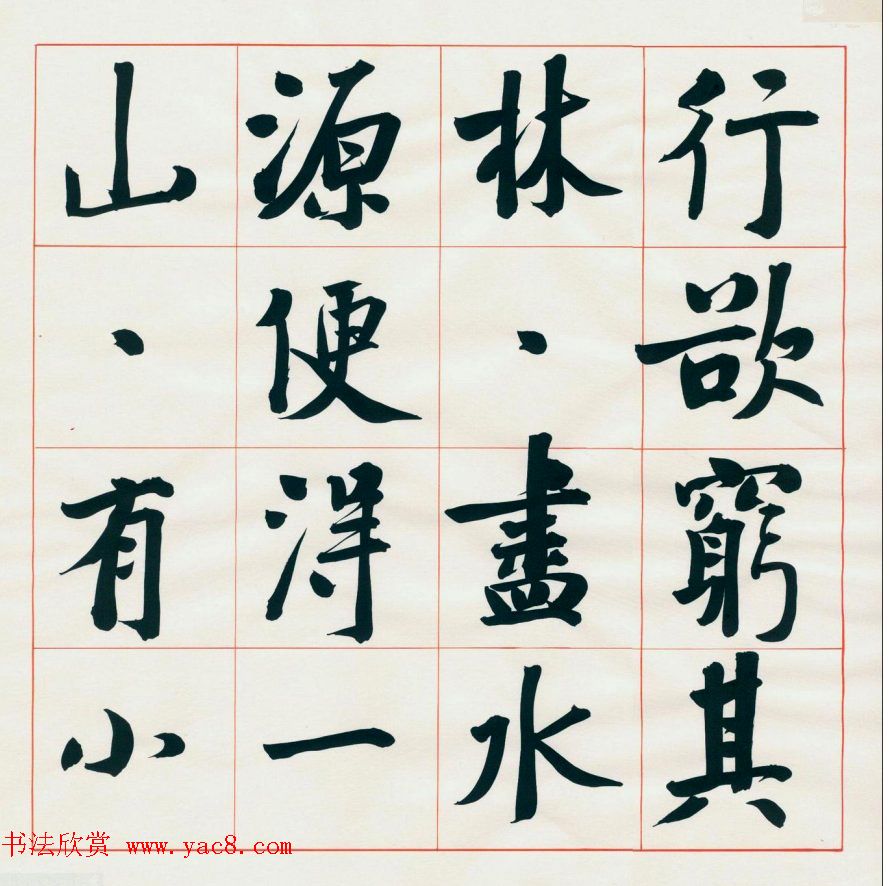 行欲窮其
林、盡水
源便得一
山、有小
书法欣赏 www.yac8.com